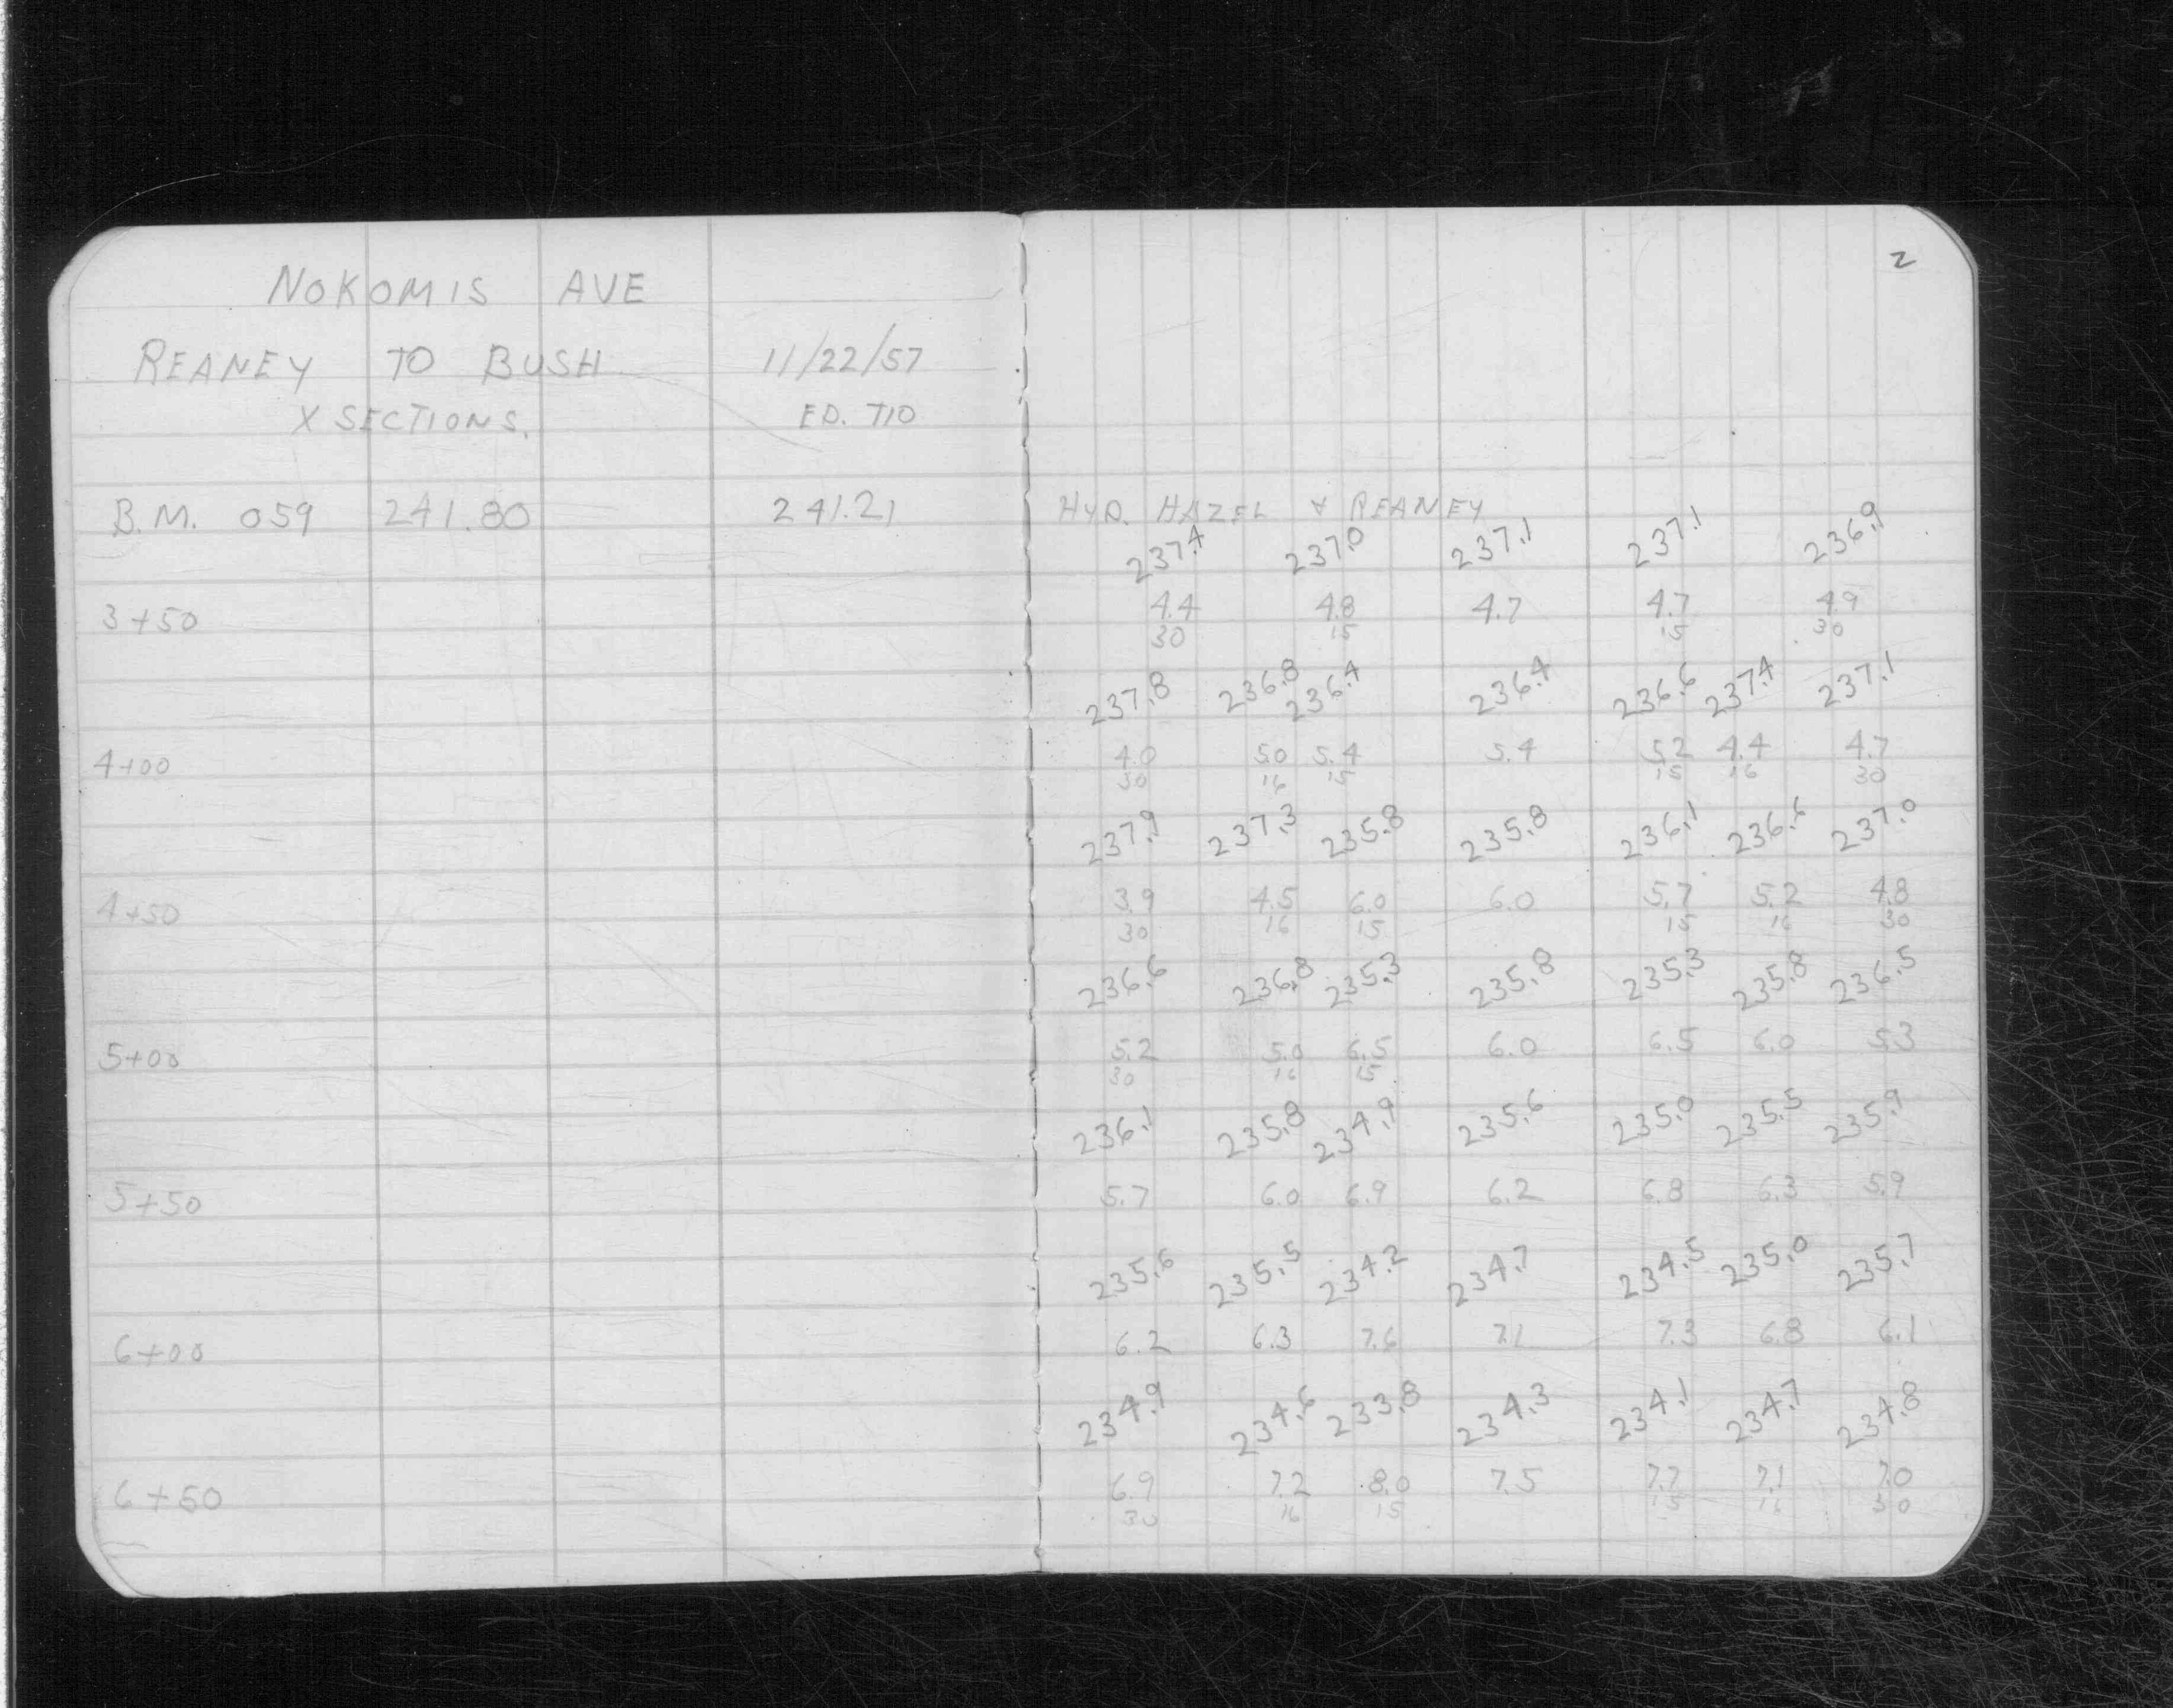 2
NOKOMIS AVE
REANEY TO BUSH 11/22/57
X SECTIONS. ED. TIO
B.M. 059 241.80 241.21 HYD. HAZEL & REANEY
237.4 237.0 237.1 237.1 236.9
3+50 4.4 4.8 4.7 4.7 4.9
30 15 15 30
237.8 236.8 236.4 236.4 236.6 237.4 237.1
4+00 4.0 5.0 5.4 5.4 5.2 4.4 4.7
30 16 15 15 16 30
237.9 237.3 235.8 235.8 236.1 236.6 237.0
4+50 3.9 4.5 6.0 6.0 5.7 5.2 4.8
30 16 15 15 16 30
236.6 236.8 235.3 235.8 235.3 235.8 236.5
5+00 5.2 5.0 6.5 6.0 6.5 6.0 5.3
30 16 15
236.1 235.8 234.9 235.6 235.0 235.5 235.9
5+50 5.7 6.0 6.9 6.2 6.8 6.3 5.9
235.6 235.5 234.2 234.7 234.5 235.0 235.7
6+00 6.2 6.3 7.6 7.1 7.3 6.8 6.1
234.9 234.6 233.8 234.3 234.1 234.7 234.8
6+50 6.9 7.2 8.0 7.5 7.7 7.1 7.0
30 16 15 15 16 30